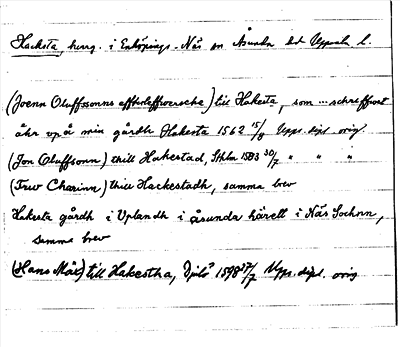 Hacksta, herrg. i Enköpings-Näs sn Åsunda hd Uppsala l.
(Joenn Oluffssonns effterleffwersche) till Hakesta, som ... schreffwet
åhr vpå min gårdh Hakesta 1562 15/8 Upps. dipl. orig.
(Jon Oluffsonn) thill Hakestad, Sthlm 1583 30/7 " " "
(Frw Charinn) thill Hackestadh, samma brev
Hakesta gårdh i Vplandh i åsunda härett i Näs Sochnn,
samma brev
(Hans Måns) till Hakestha, 1598 27/7 Upps. dipl. orig